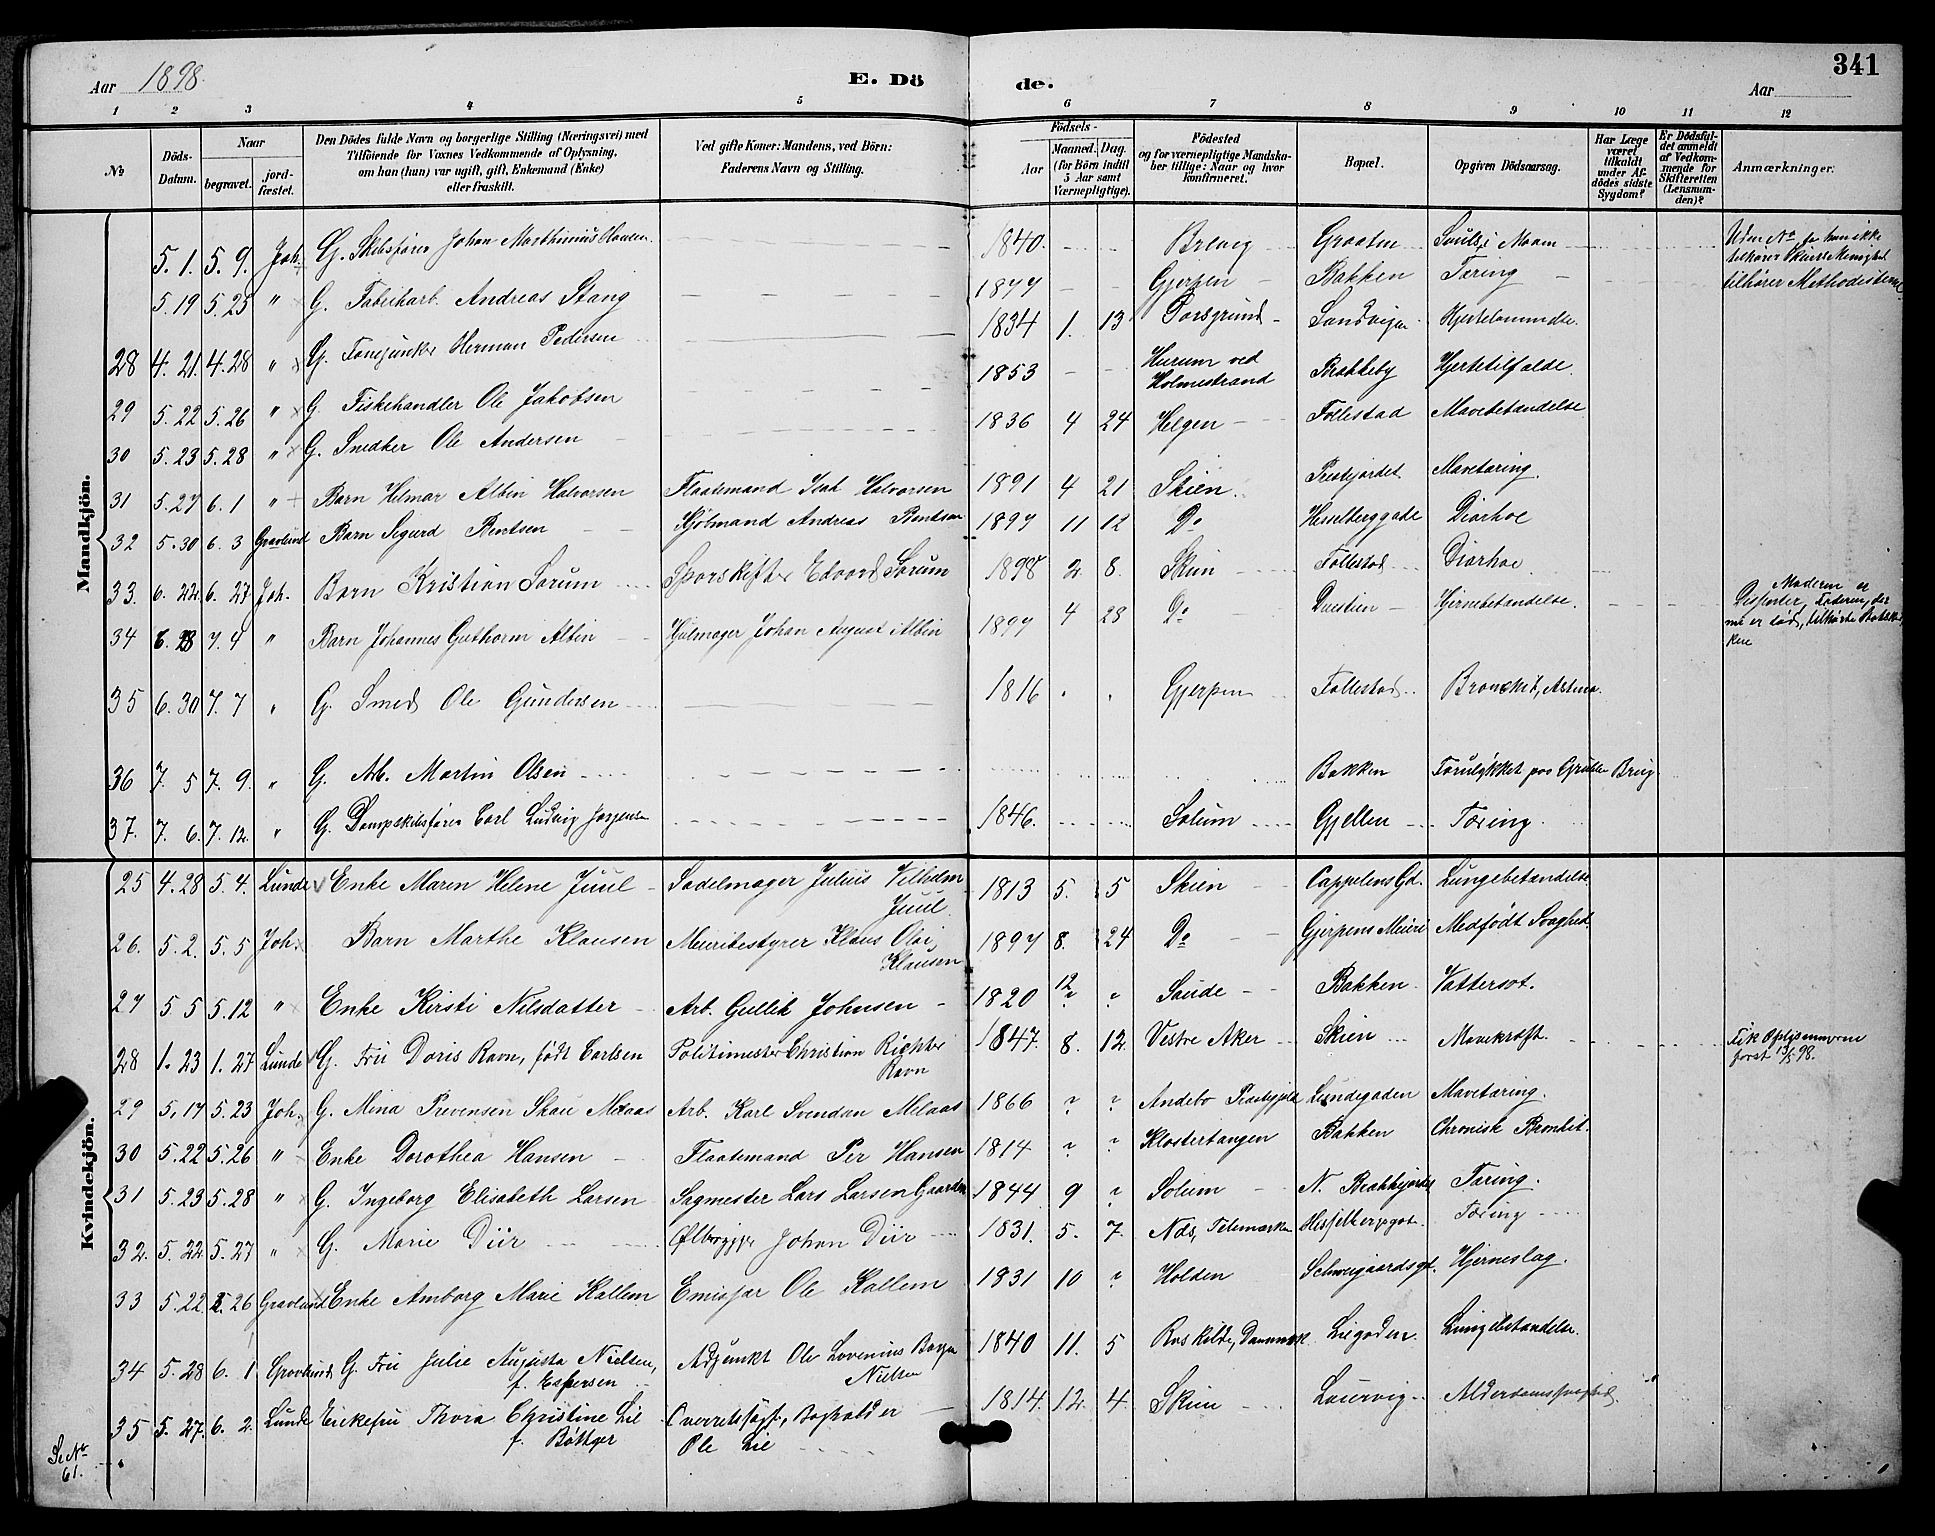 341
Aar 1898.
E. Dö
de.
Aar
1 2 3 4 5 6 7 8 9 10 11 12
No
Döds-Datum.
Naar
begravet.
jord-fæstet.
Den Dödes fulde Navn og borgerlige Stilling (Næringsvei) med
Tilföiende for Voxnes Vedkommende af Oplysning,
om han (hun) var ugift, gift, Enkemand (Enke)
eller fraskilt.
Ved gifte Koner: Mandens, ved Børn:
Faderens Navn og Stilling.
Födsels-
Aar
Maaned. Dag.
(for Börn indtil
5 Aar samt
Værnepligtige).
Födested
og for værnepligtige Mandska-
ber tillige: Naar og hvor
konfirmeret.
Bopæl.
Opgiven Dödsaarsag.
Har Læge
været
tilkaldt
under Af-
dödes sidste
Sygdom?
Er Dödsfal-
det anmeldt
af Vedkom-
mende for
Skifteretten
(Lensman-
den)?
Anmærkninger.
Mandkjön.
5. 1. 5. 9. Joh. G. Skibsfører Johan Marthinius Hansen 1840. Brevig Graaten
Uden No
5.19 5.25 " G. Fabrikarb. Andreas Stang 1877 Gjerpen Bakken Tæring tilhører Methodisterne
28 4. 21. 4.28 " G. Herman Pedersen 1834 1. 13 Porsgrund Sandvigen
29 5. 22 5.26 " G. Fiskehandler Ole Jakobsen 1853 Hurum ved Holmestrand Brækkeby Hjertetilfælde.
30 5. 23 5.28 " G. Snedker Ole Andersen 1836 4 24 Helgen Follestad Mavebetændelse
31 5.27 6. 1 " Barn Hilmar Albin Halvorsen Flaatemand Isak Halvorsen 1891 4 21 Skien Mavetæring
32 5.30 6. 3 Gravlund Barn Sigurd Bentsen Andreas Bentsen 1897 11 12 Do Hesselberggade Diarhoe
33. 6. 22. 6. 27 Joh. Barn Kristian Sørum Sporskifter Edvard Sørum 1898 2. 8. Skien Follestad Diarhoe
34 6. 28 7. 4 " Barn Johannes Guthorm Albin Hjulmager Johan August Albin 1897 4 28 Do Duestien Hjernebetændelse.
Moderen er
Dissenter, Faderen, der
nu er død, tilhørte Statskir
ken
35 6. 30 7. 7 " G. Smed Ole Gundersen 1816 Gjerpen Follestad Bronchit, Astma.
36 7. 5 7. 9. " G. Arb. Martin Olsen Bakken Forulykket paa Brug
37. 7. 6. 7. 12. " G. Dampskibsfører Carl Ludvig Jørgensen 1846. Solum Gjellen Tæring.
Kvindekjön.
25 4. 28 5. 4. Lunde Enke Maren Helene Juul Sadelmager Julius Vilhelm Juul 1813 5. 5 Skien Cappelens Gd. Lungebetændelse
26. 5. 2. 5. 5 Joh. Barn Marthe Klausen Meieribestyrer Klaus Olai Klausen 1897 8. 24 Do Gjerpens Meieri Medfødt Svaghed
27 5 5 5.12 " Enke Kirsti Nilsdatter Arb. Gullik Johnsen 1820 12 ? ? Saude Bakken Vattersot.
28 1. 23 1. 27 Lunde G. Fru Doris Ravn, født Carlsen Politimester Christian Richter Ravn 1847. 8. 12. Vestre Aker Skien Mavekræft. Fik Oplysningerne
først 13/5 98.
29 5. 17 5. 23 Joh. G. Mina Prevensen Skau Melaas Arb. Karl Svendsen Melaas 1866 ? ? Andebo Præstegjeld Lundegaden Mavetæring.
30 5. 22 5.26 " Enke Dorothea Hansen Flaatemand Per Hansen 1814 ? ? Klostertangen Bakken Chronisk Bronkit.
31 5. 23 5. 28 " G. Ingeborg Elisabeth Larsen Sagmester Lars Larsen Gaarden 1844 9 ? Solum N. Brækkejordet Tæring.
32. 5. 22 5. 27 " G. Marie Diir Ølbrygger Johan Diir 1831. 5. 7. Nds, Telemarken Hesselberggat. Tæring
33 5. 22 5. 26 Gravlund Enke Amborg Marie Kallem Emissær Ole Kallem 1831 10 ? Holden Schweigaardsgd. Hjerneslag.
34 5. 28 6. 1 Gravlund G. Fru Julie Augusta Nielsen, f. Espersen Adjunkt Ole Lovenius Nielsen 1840 11. 5 Roskilde, Danmark Liegaden Lungebetændelse.
35 5. 27. 6. 2. Lunde Enkefru Thora Christine Lie f. Bøttger Overretssagf., Bogholder Ole Lie 1814. 12. 4 Skien Laurvig Alderdomssvaghed
Se Nr.
61.